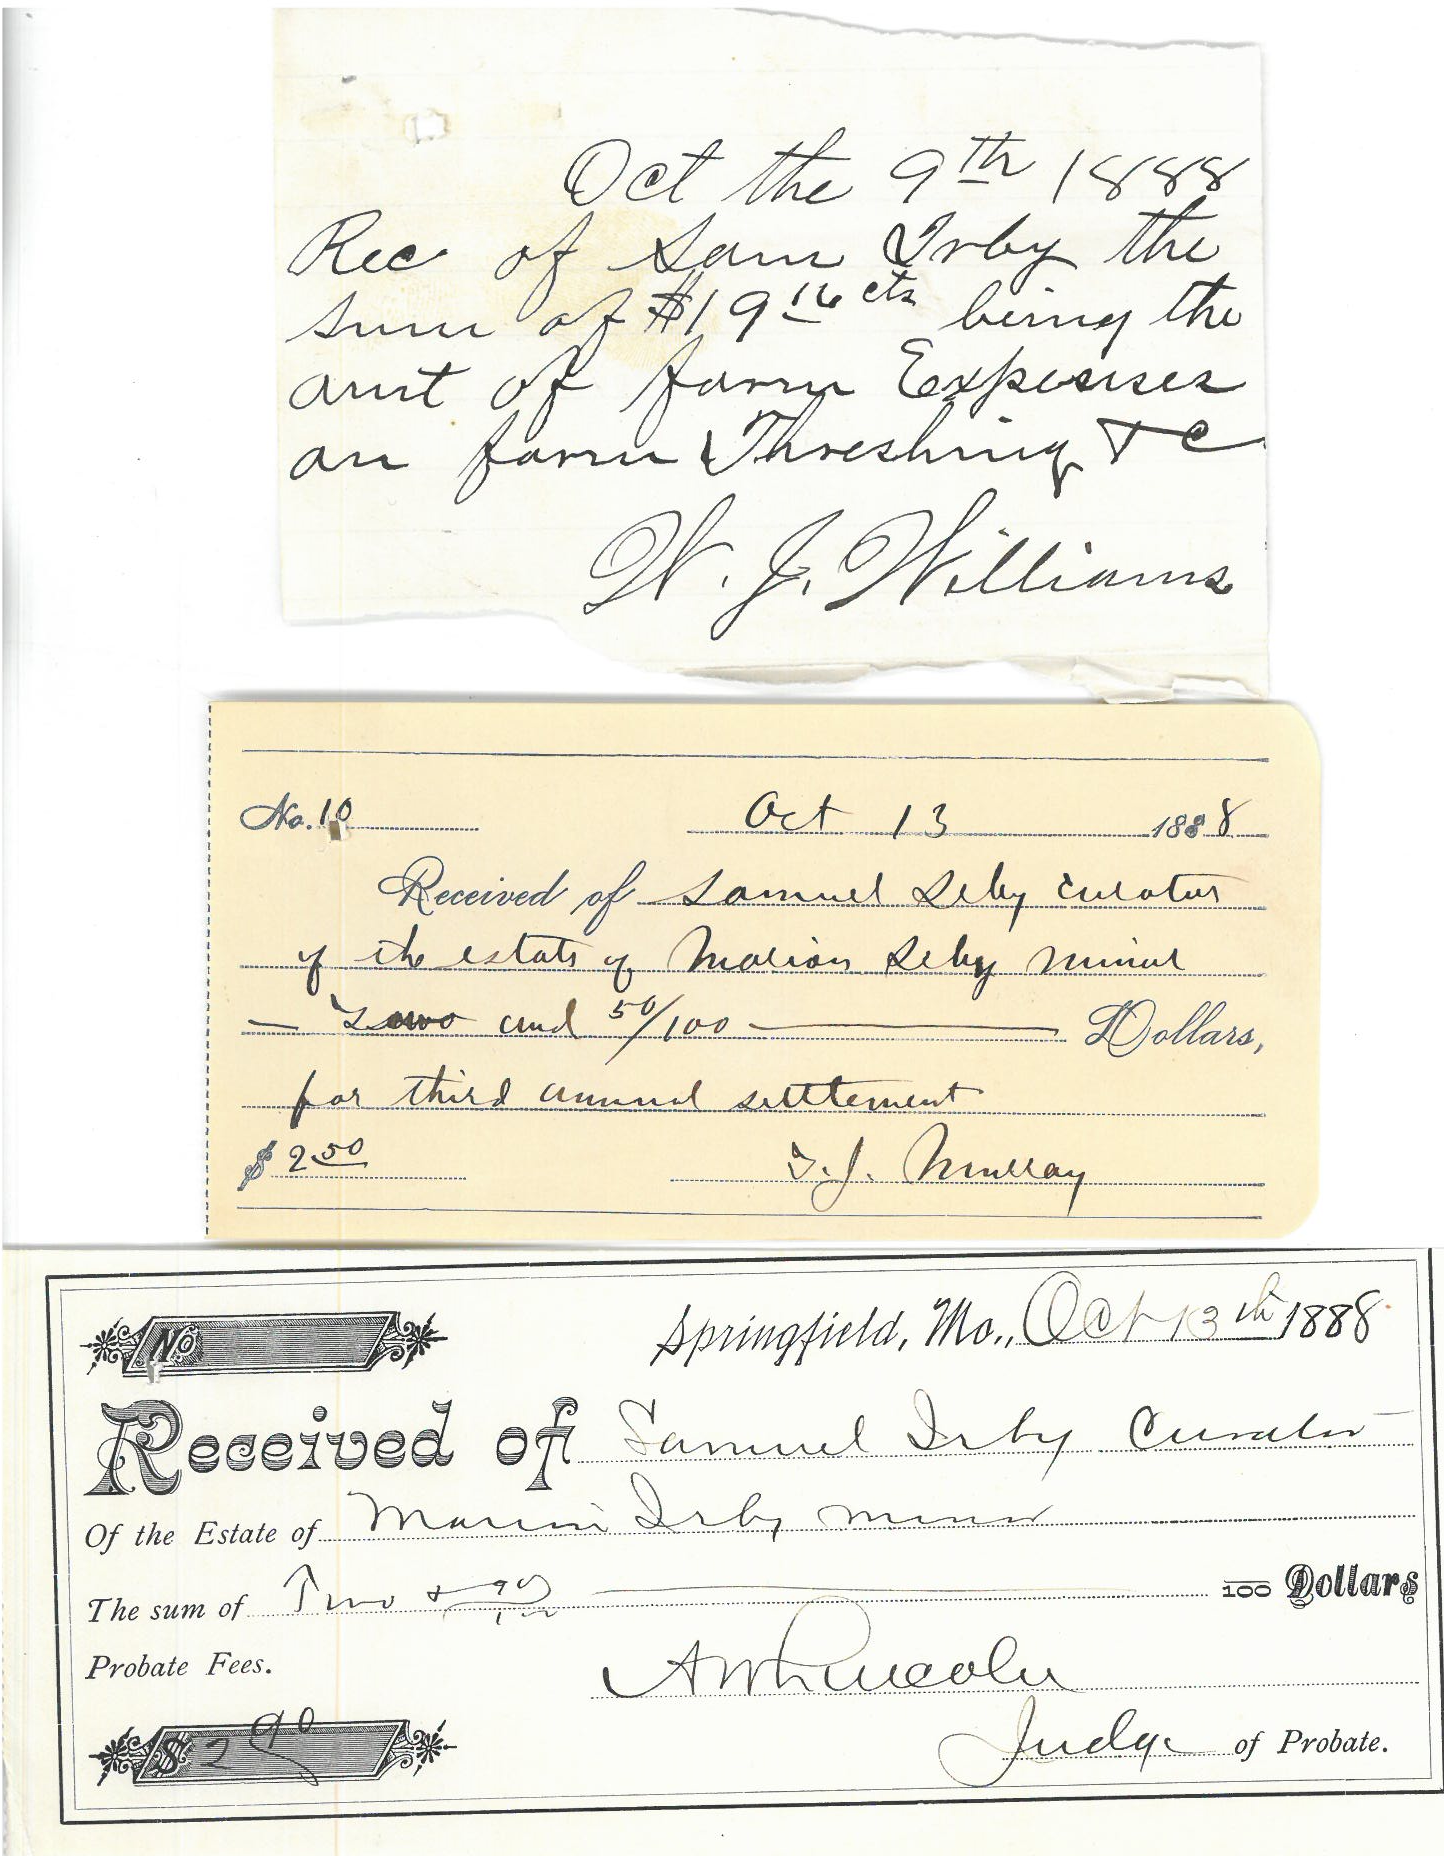 Oct the 9th 1888
Rec of Sam Irby the
sum of $19 16 cts being the
amt of farm Expenses
on farm Threshing & C
W. J. Williams
No. 10 Oct 13 1888
Received of Samuel Irby curator
of the estate of Marion Irby minor
— Two and 50/100 — Dollars,
for third annual settlement
$ 2 50 T. J. Murray
No
Springfield, Mo., Oct 13th 1888
Received of Samuel Irby Curator
Of the Estate of Marion Irby minor
The sum of Two & 90/100 — 100 Dollars
Probate Fees. A W Lincoln
$ 2 90 Judge of Probate.